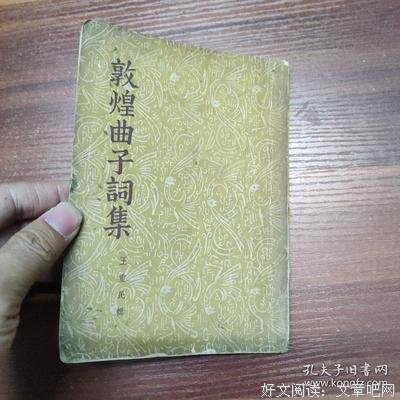 敦煌曲子詞集
王重民輯
孔夫子旧书网
好文阅读：文章吧网